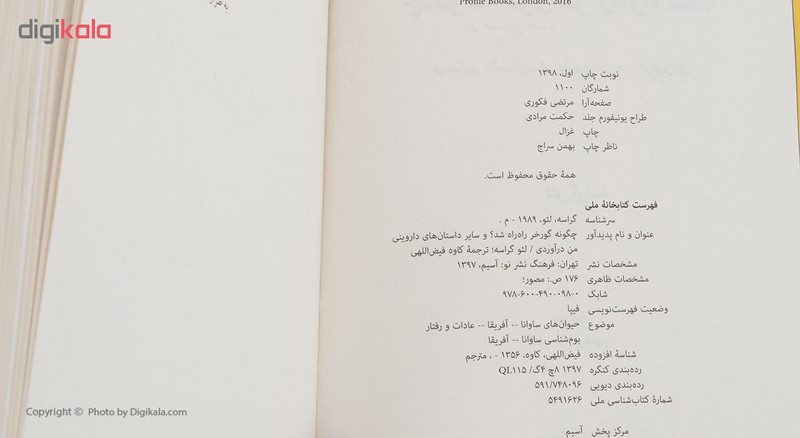 digikala
Profile Books, London, 2016
نوبت چاپ اول، ۱۳۹۸
شمارگان ۱۱۰۰
صفحه‌آرا مرتضی فکوری
طراح یونیفورم جلد حکمت مرادی
چاپ غزال
ناظر چاپ بهمن سراج
همهٔ حقوق محفوظ است.
فهرست کتابخانهٔ ملی
سرشناسه گراسه، لئو، ۱۹۸۹ - م .
عنوان و نام پدیدآور چگونه گورخر راه‌راه شد؟ و سایر داستان‌های داروینی
من درآوردی / لئو گراسه؛ ترجمهٔ کاوه فیض‌اللهی
مشخصات نشر تهران: فرهنگ نشر نو: آسیم، ۱۳۹۷
مشخصات ظاهری ۱۷۶ ص.: مصور؛
شابک ۹۷۸-۶۰۰-۴۹۰-۰۹۸-۰
وضعیت فهرست‌نویسی فیپا
موضوع حیوان‌های ساوانا -- آفریقا -- عادات و رفتار
بوم‌شناسی ساوانا -- آفریقا
شناسهٔ افزوده فیض‌اللهی، کاوه، ۱۳۵۶ - ، مترجم
رده‌بندی کنگره ۱۳۹۷ ۸چ ۴گ/ QL۱۱۵
رده‌بندی دیویی ۵۹۱/۷۴۸۰۹۶
شمارهٔ کتاب‌شناسی ملی ۵۴۹۱۶۲۶
مرکز پخش آسیم
Copyright © Photo by Digikala.com